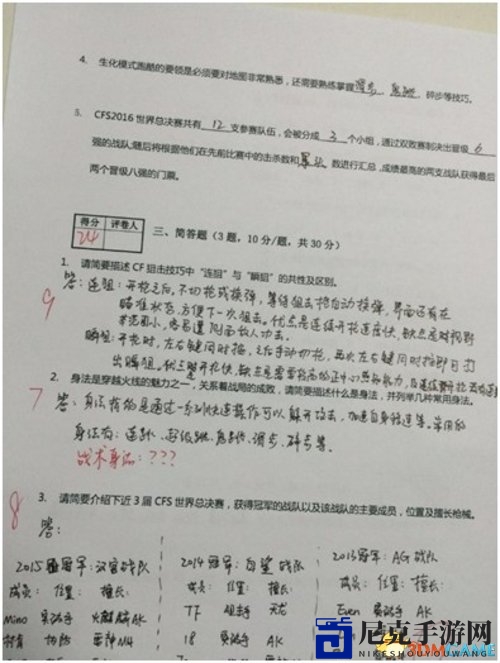 4. 生化模式跑酷的要领是必须要对地图非常熟悉，还需要熟练掌握滑步、鬼跳、碎步等技巧。
5. CFS2016世界总决赛共有 12 支参赛队伍，会被分成 3 个小组，通过双败赛制决出晋级 6
强的战队;随后将根据他们在先前比赛中的击杀数和 数进行汇总，成绩最高的两支战队获得最后
两个晋级八强的门票。
得分 评卷人
24
三、简答题（3题，10分/题，共30分）
1. 请简要描述CF狙击技巧中“连狙”与“瞬狙”的共性及区别。
9
答：连狙：开枪之后，不切枪或换弹，等待狙击枪自动换弹，界面还有在
瞄准状态，方便下一次狙击。优点是连续开枪速度快，缺点是对视野
范围小，容易遭到面敌人攻击。
瞬狙：开枪时，左右键同时按，之后手动切枪，再次左右键同时按即可打
出瞬狙。优点是开枪快，缺点是需要
2. 身法是穿越火线的魅力之一，关系着战局的成败，请简要描述什么是身法，并列举几种常用身法。
7
答：身法指的是通过一系列快速操作可以躲开攻击，加速自身移速等。常用的
身法有：连跳、超级跳、鬼跳、滑步、碎步等。
战术身法：???
3. 请简要介绍下近3届CFS世界总决赛，获得冠军的战队以及该战队的主要成员，位置及擅长枪械。
8
答：
2015冠军：汉宫战队 2014冠军：白鲨战队 2013冠军：AG战队
成员： 位置： 擅长： 成员： 位置： 擅长： 成员： 位置： 擅长：
Mino 突破手 火麒麟AK TF 狙击手 天龙 Even 突破手 AK
村育 M4 18 突破手 AK
尼克手游网
NIKESHOUYOUWANG
3DMGAME